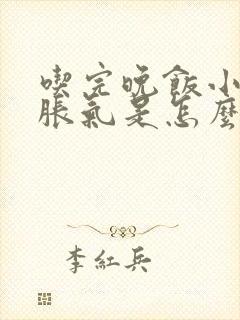 喫完晚飯小
脹氣是怎麼
李紅兵